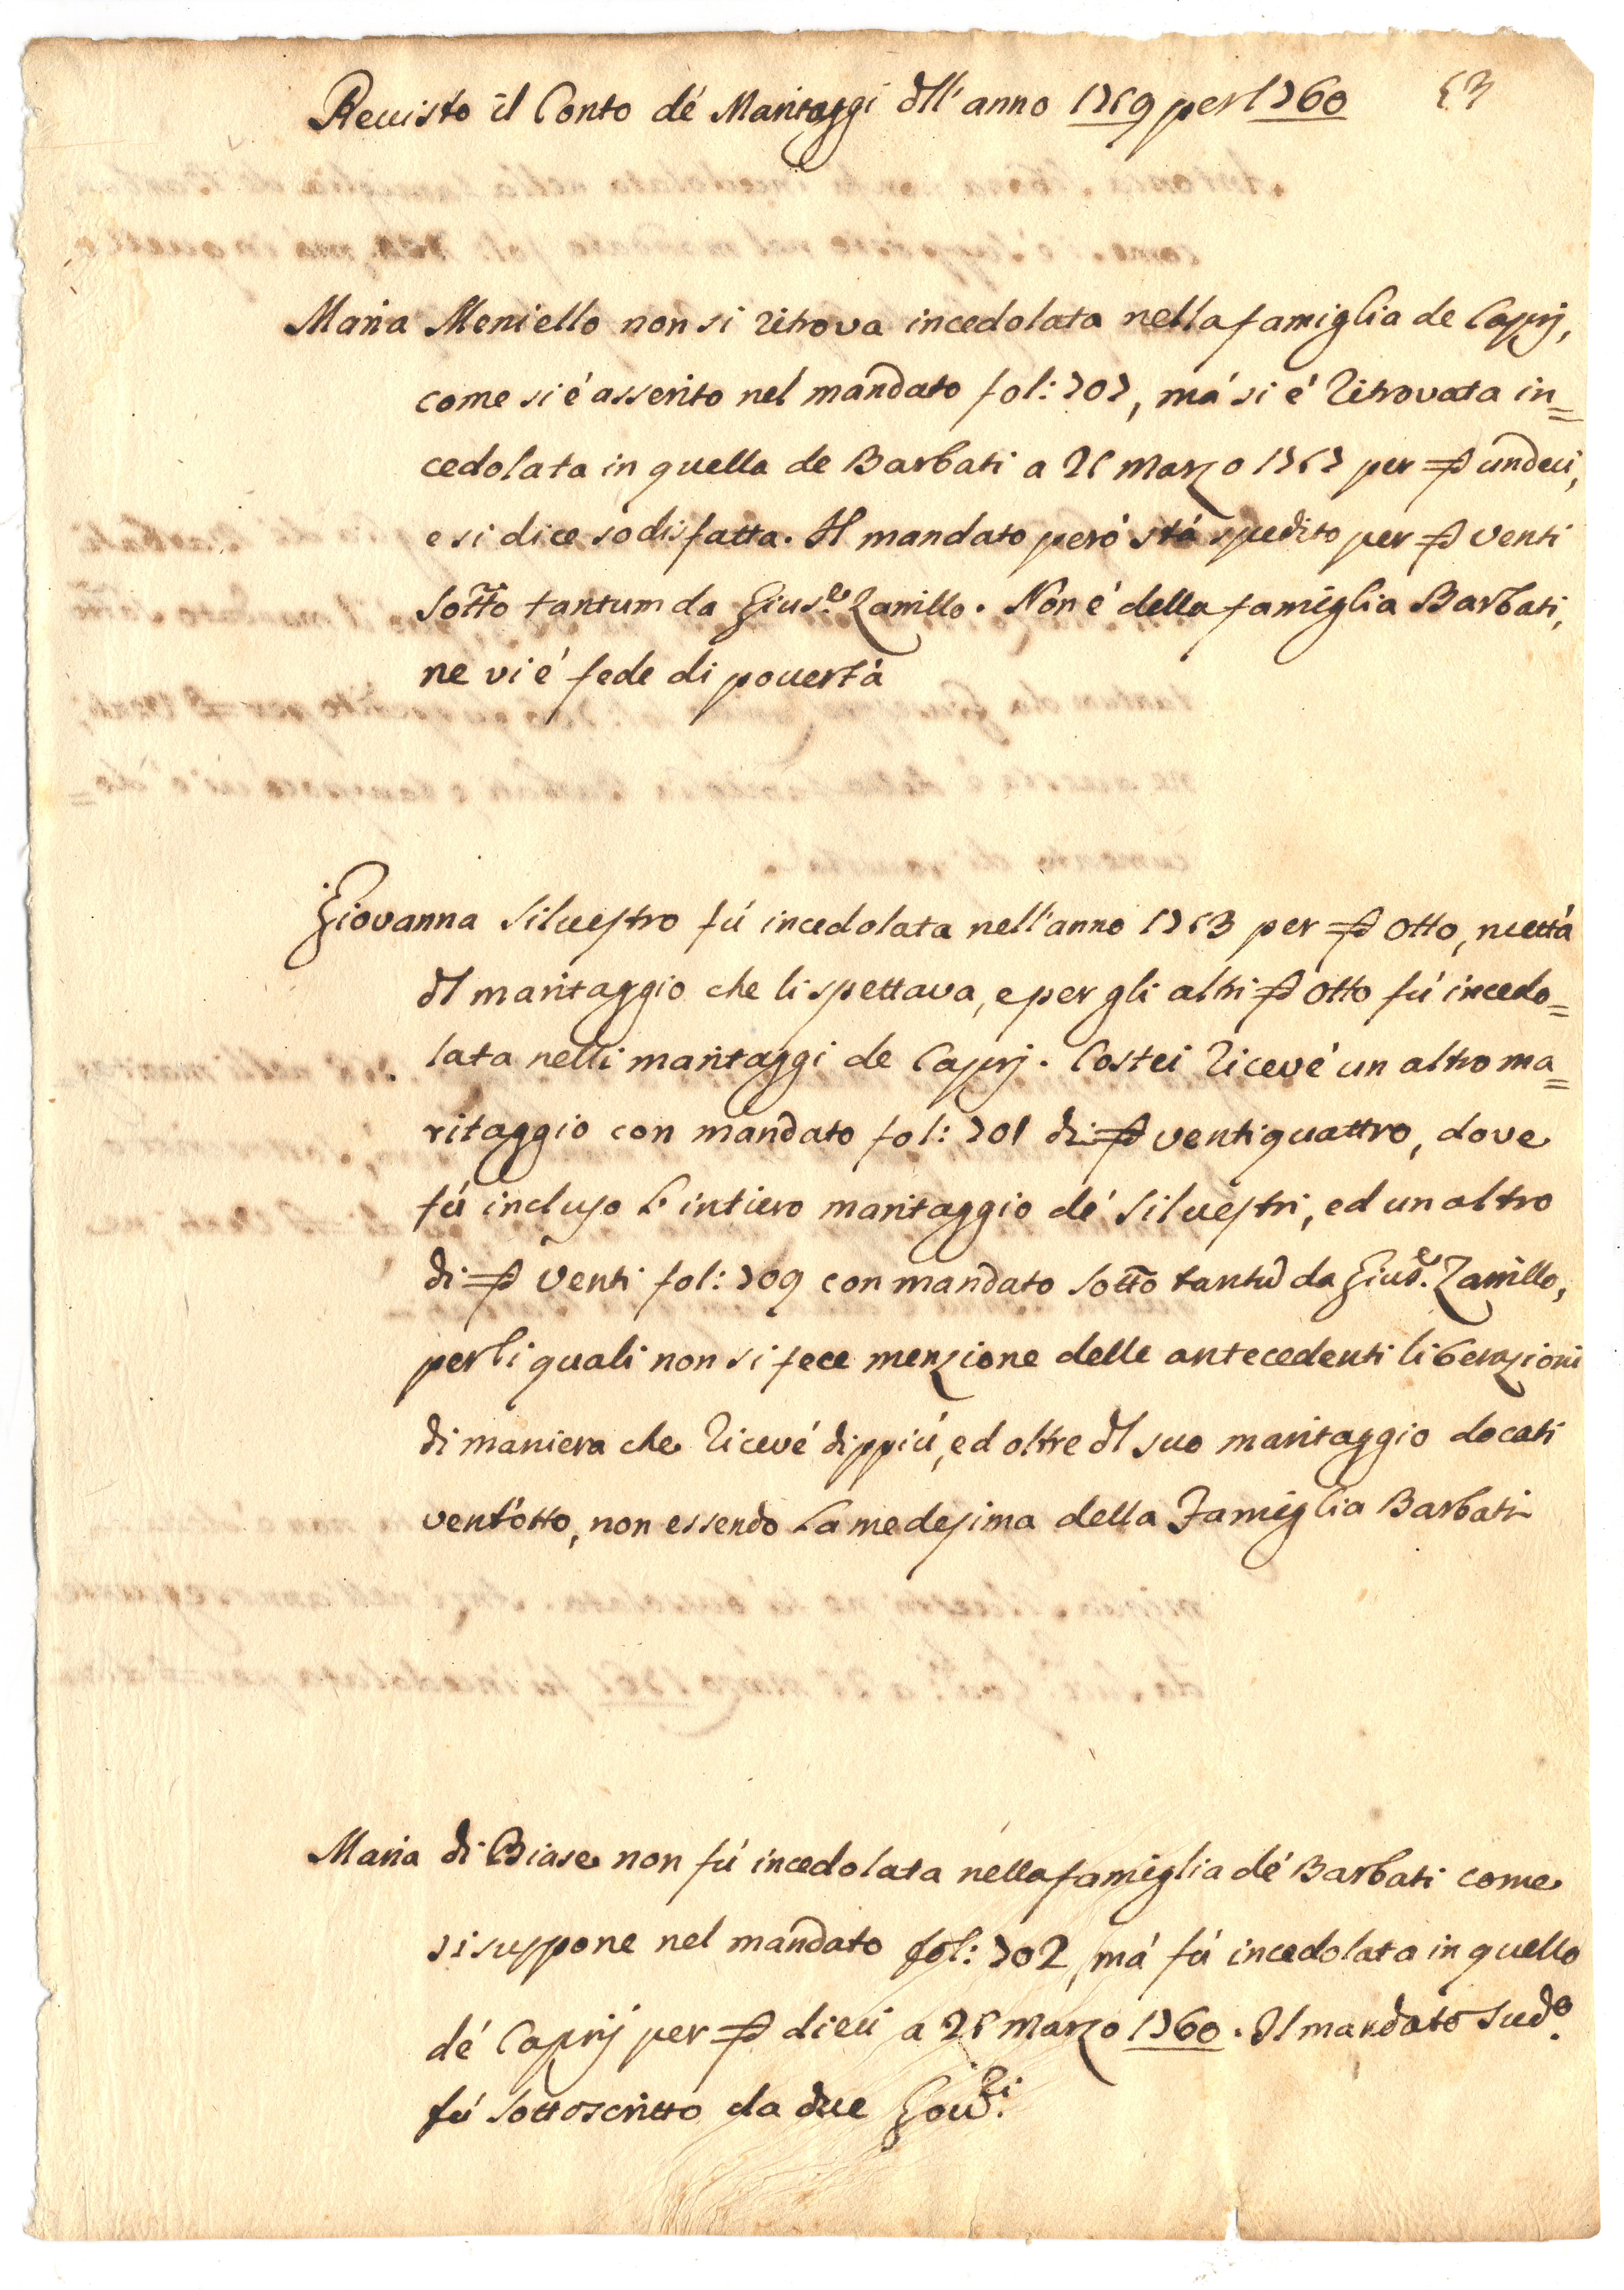 Reuisto il Conto dé Maritaggi dll'anno 1759 per 1760 53
Maria Meniello non si ritrova incedolata nella famiglia de Caprj,
come si é asserito nel mandato fol: 707, má si é ritrovata in=
cedolata in quella de Barbati a 25 Marzo 1757 per undeci,
e si dice sodisfatta. Il mandato peró stá spedito per venti
sotto tantum da Gius.e Zarrillo. Non é della famiglia Barbati,
ne vi é fede di pouertá
Giovanna Siluestro fú incedolata nell'anno 1753 per otto, mettá
dl maritaggio che li spettava, e per gli altri otto fú incedo=
lata nelli maritaggi de Caprj. Costei ricevé un altro ma=
ritaggio con mandato fol: 701 di ventiquattro, dove
fú incluso l'intiero maritaggio dé Siluestri, ed un altro
di venti fol: 709 con mandato sotto tantũ da Gius.e Zarrillo,
per li quali non si fece menzione delle antecedenti liberazioni
di maniera che ricevé dippiú, ed oltre dl suo maritaggio docati
vent'otto, non essendo la medesima della Famiglia Barbati
Maria di Biase non fú incedolata nella famiglia dé Barbati come
si suppone nel mandato fol: 702, má fú incedolata in quella
dé Caprij per dieci a 25 Marzo 1760. Il mandato sud.o
fú sottoscritto da due Gov.ri